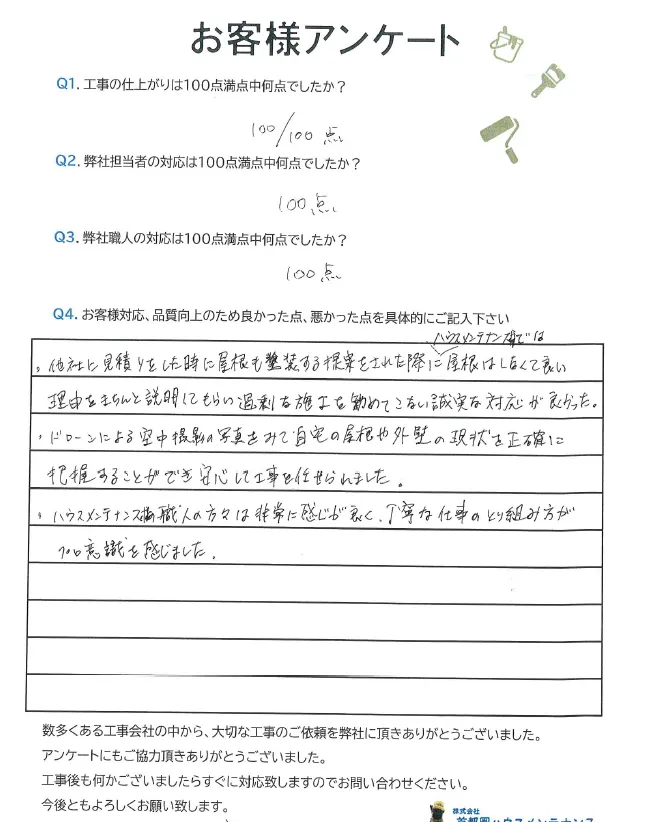 お客様アンケート
Q1. 工事の仕上がりは100点満点中何点でしたか？
100/100 点
Q2. 弊社担当者の対応は100点満点中何点でしたか？
100点
Q3. 弊社職人の対応は100点満点中何点でしたか？
100点
Q4. お客様対応、品質向上のため良かった点、悪かった点を具体的にご記入下さい
ハウスメンテナンス様では
・他社に見積りをした時に屋根も塗装する提案をされた際に屋根はしなくて良い
理由をきちんと説明してもらい過剰な施工を勧めてこない誠実な対応が良かった。
・ドローンによる空中撮影の写真をみて自宅の屋根や外壁の現状を正確に
把握することができ安心して工事を任せられました。
・ハウスメンテナンス様職人の方々は非常に感じが良く、丁寧な仕事のとり組み方が
プロ意識を感じました。
数多くある工事会社の中から、大切な工事のご依頼を弊社に頂きありがとうございました。
アンケートにもご協力頂きありがとうございました。
工事後も何かございましたらすぐに対応致しますのでお問い合わせください。
今後ともよろしくお願い致します。
株式会社
首都圏ハウスメンテナンス